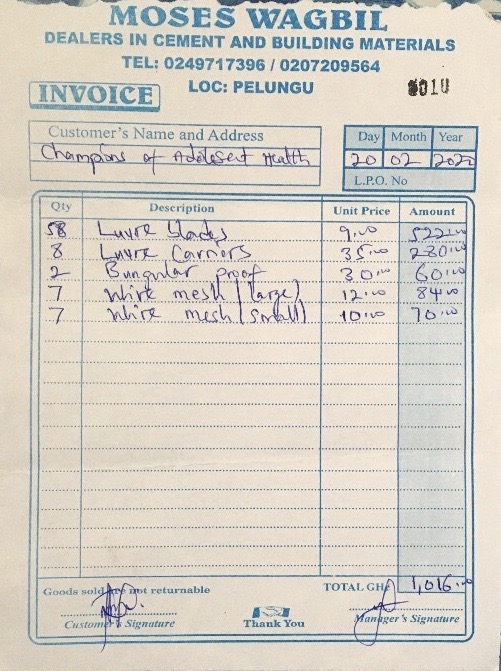 MOSES WAGBIL
DEALERS IN CEMENT AND BUILDING MATERIALS
TEL: 0249717396 / 0207209564
LOC: PELUNGU
INVOICE
Customer's Name and Address
Champions of Adolesent Health
Day Month Year
20 02 2020
L.P.O. No
Qty Description Unit Price Amount
58 Luvre blades 9.00 522.00
8 Luvre Carriors 35.00 280.00
2 Bunglar proof 30.00 60.00
7 Wire mesh (large) 12.00 84.00
7 Wire mesh (small) 10.00 70.00
Goods sold are not returnable
TOTAL GH₵ 1,016.00
Customer's Signature
Thank You
Manager's Signature